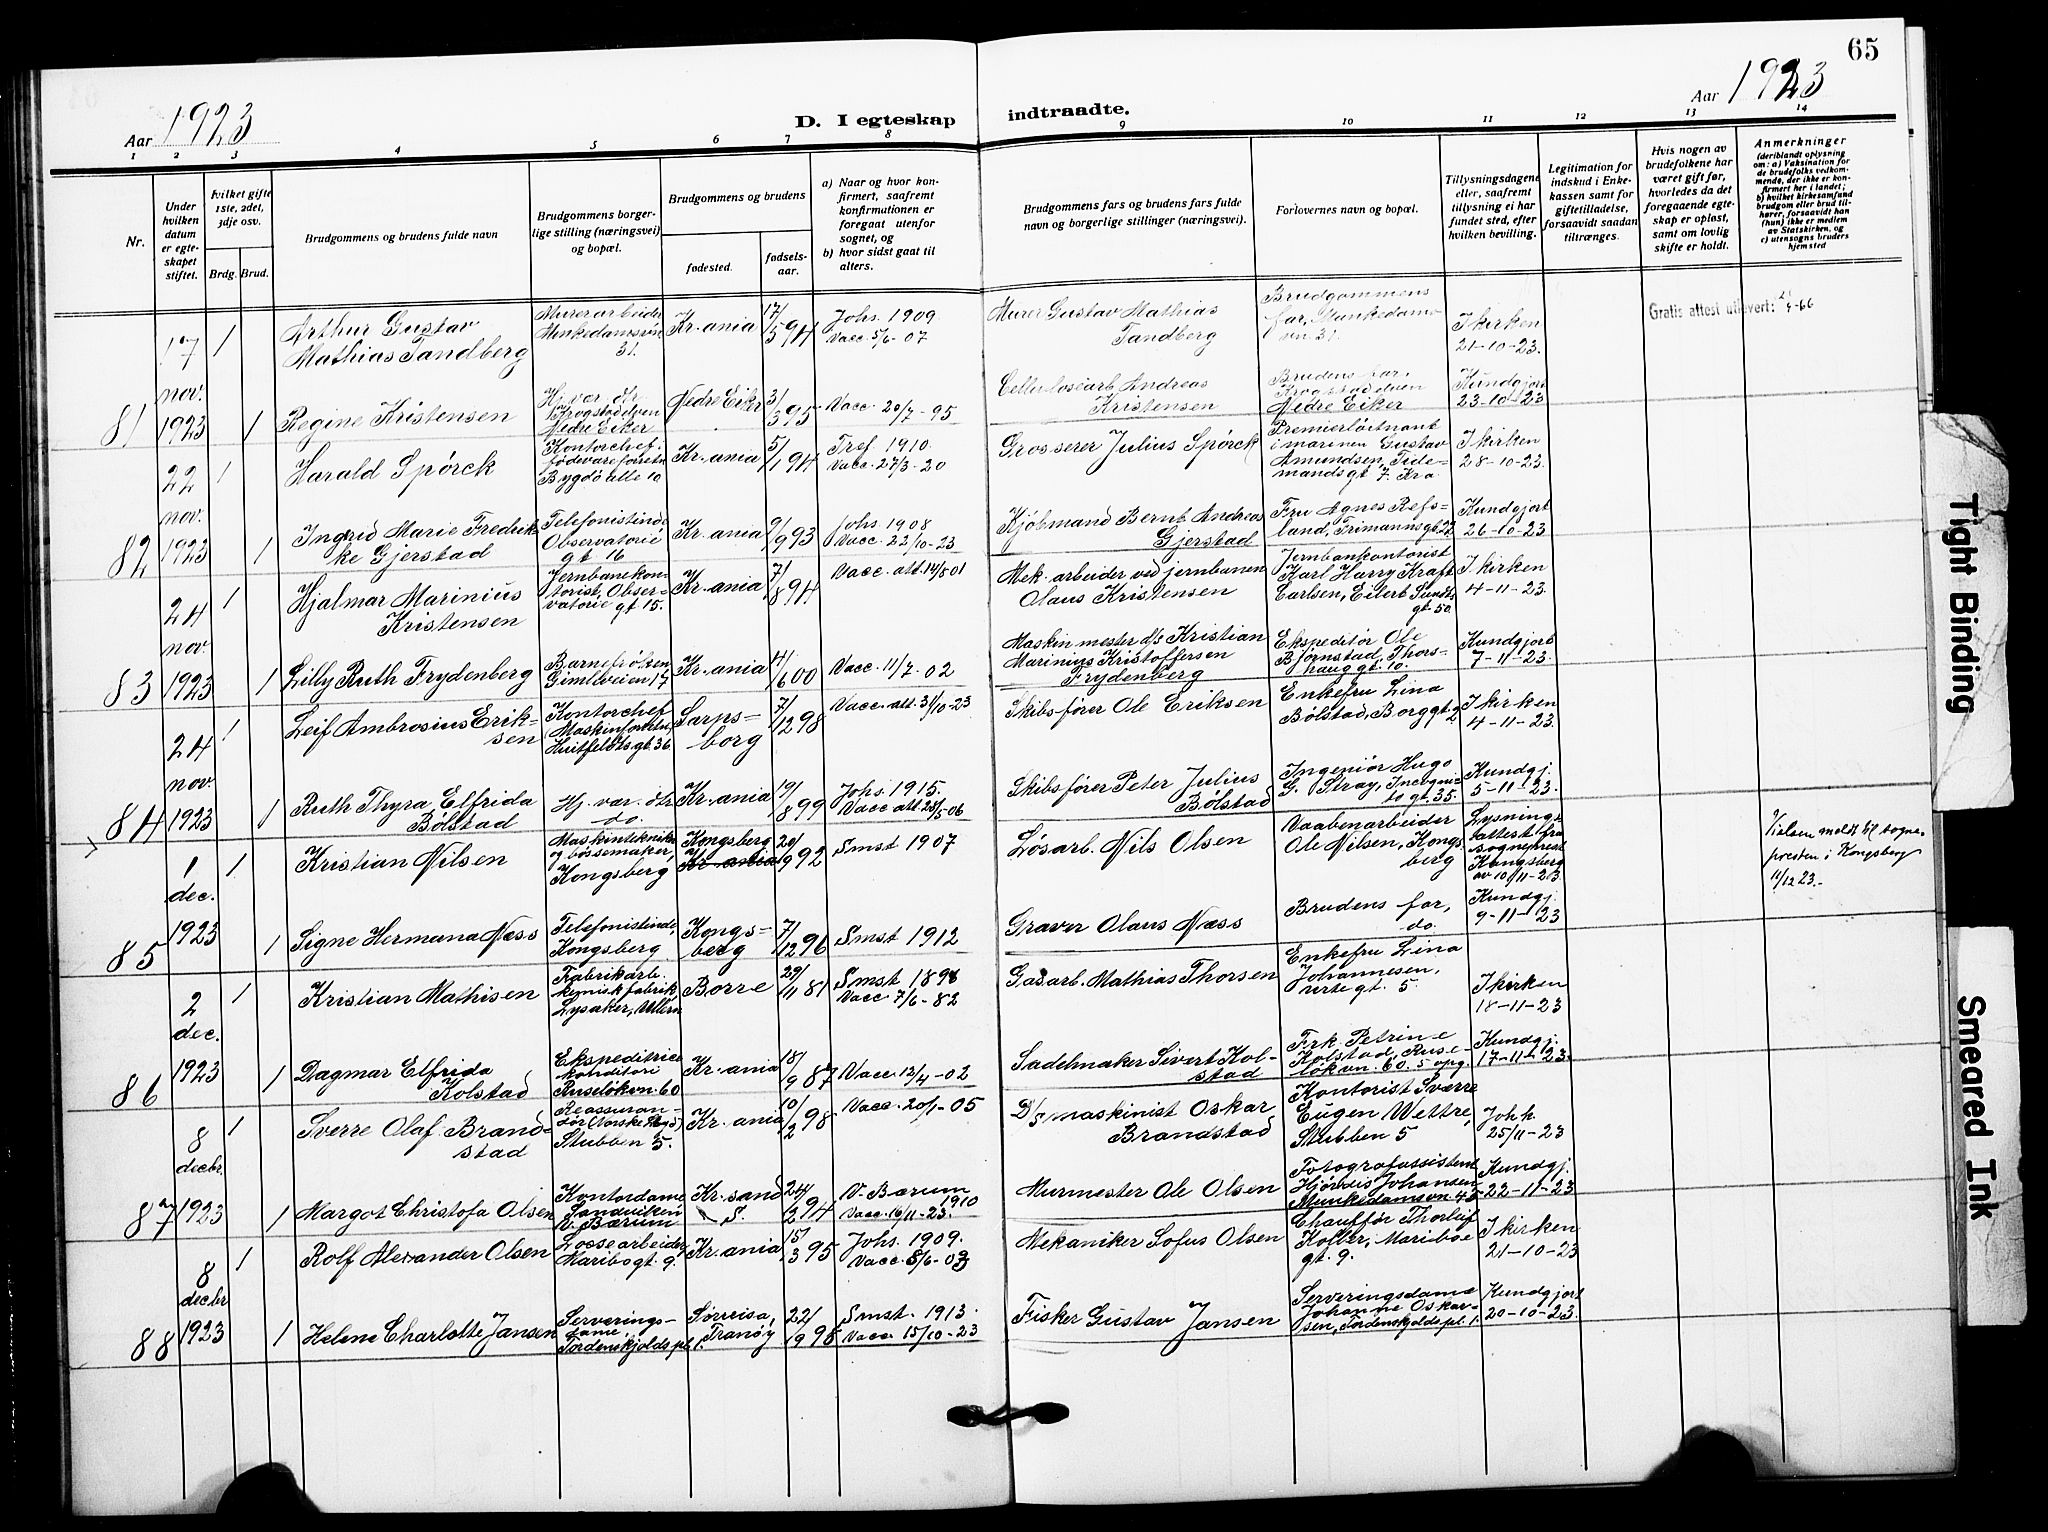 65
Aar 1923
D. I egteskap indtraadte.
Aar 1923
1 2 3 4 5 6 7 8 9 10 11 12 13 14
Nr.
Under hvilken datum er egteskapet stiftet.
Hvilket gifte 1ste, 2det, 3dje osv.
Brdg. Brud.
Brudgommens og brudens fulde navn
Brudgommens borgerlige stilling (næringsvei) og bopæl.
Brudgommens og brudens
fødested. fødselsaar.
a) Naar og hvor konfirmert, saafremt konfirmationen er foregaat utenfor sognet, og
b) hvor sidst gaat til alters.
Brudgommens fars og brudens fars fulde navn og borgerlige stillinger (næringsvei).
Forlovernes navn og bopæl.
Tillysningsdagene eller, saafremt tillysning ei har fundet sted, efter hvilken bevilling.
Legitimation for indskud i Enkekassen samt for giftetilladelse, forsaavidt saadan tiltrænges.
Hvis nogen av brudefolkene har været gift før, hvorledes da det foregaaende egteskap er opløst, samt om lovlig skifte er holdt.
Anmerkninger
(deriblandt oplysning om: a) Vaksination for de brudefolks vedkommende, der ikke er konfirmert her i landet; b) hvilket kirkesamfund brudgom eller brud tilhører, forsaavidt han (hun) ikke er medlem av Statskirken, og c) utensogns bruders hjemsted
81
17 nov. 1923
1 Arthur Gustav Mathias Tandberg
Murerarbeider Munkedamsvn. 31.
Kr.ania 17/5 94
Johs. 1909. Vacc. 5/6-07
Murer Gustav Mathias Tandberg
Brudgommens far, Munkedamsvn. 31.
I kirken 21-10-23.
Gratis attest utlevert: 4-66
1 Regine Kristensen
Hj. vær. dr. Krogstadelven Nedre Eiker
Nedre Eiker 3/3 95
Vacc. 20/7-95
Cellulosearb. Andreas Kristensen
Brudens far, Krogstadelven Nedre Eiker
Kundgjort 23-10-23
82
22 nov. 1923
1 Harald Spørck
Kontorchef. fødevareforretn. Bygdø alle 10
Kr.ania 5/1 94
Tref. 1910. Vacc. 27/3-20
Grosserer Julius Spørck
Premierløitnant i marinen Gustav Amundsen, Tidemandsgt 7. Kra
I kirken 28-10-23.
1 Ingrid Marie Fredrikke Gjerstad
Telefonistinde Observatoriegt 16
Kr.ania 9/9 93
Johs 1908 Vacc. 22/10-23
Kjøbmand Bernt Andreas Gjerstad
Fru Agnes Refsland, Frimannsgt 22
Kundgjort 26-10-23.
83
24 nov. 1923
1 Hjalmar Marinius Kristensen
Jernbanekontorist, Observatoriegt 15.
Kr.ania 7/8 94
Vacc. att. 14/8 01
Mek. arbeider ved jernbanen Olaus Kristensen
Jernbankontorist Karl Harry Kraft Carlsen, Eilert Sundtsgt. 50.
I kirken 4-11-23.
1 Lilly Ruth Frydenberg
Barnefrøken Gimleveien 17
Kr.ania 4/6 00
Vacc. 11/7-02
Maskinmester d/s Kristian Marinius Kristoffersen Frydenberg
Ekspeditør Ole Bjørnstad, Thorshauggt. 10.
Kundgjort 7-11-23.
84
24 nov. 1923
1 Leif Ambrosius Eriksen
Kontorchef (Maskinforretn.) Huitfeldtsgt. 36
Sarpsborg 7/12 98
Vacc. att. 31/10-23
Skibsfører Ole Eriksen
Enkefru Lina Bølstad, Borggt 2
I kirken 4-11-23.
1 Ruth Thyra Elfrida Bølstad
Hj. vær. dr. do.
Kr.ania 19/8 99
Johs. 1915. Vacc. att. 28/5-06
Skibsfører Peter Julius Bølstad
Ingeniør Hugo G. Stray, Incognitogt. 35.
Kundgj. 5-11-23.
85
1 dec. 1923
1 Kristian Nilsen
Maskintekniker og bøssemaker, Kongsberg
Kongsberg Kr.ania 20/9 92
Smst 1907
Løsarb. Nils Olsen
Vaabenarbeider Ole Nilsen, Kongsberg
Lysningsattest fra sogneprest Kongsberg av 10/11-23.
Vielsen meldt til sognepresten i Kongsberg 11/12 23.-
1 Signe Hermana Næss
Telefonistinde, Kongsberg
Kongsberg 7/12 96
Smst 1912
Graver Olaus Næss
Brudens far, do.
Kundgj. 9-11-23
86
2 dec. 1923
1 Kristian Mathisen
Fabrikarb. kemisk fabrik, Lysaker, Ullern
Borre 29/11 81
Smst 1898 Vacc. 7/6-82
Gadarb. Mathias Thorsen
Enkefru Lina Johannesen, Urtegt. 5
I kirken 18-11-23
1 Dagmar Elfrida Kolstad
Ekspeditrice konditori Ruseløkvn. 60
Kr.ania 18/9 87
Vacc. 12/4-02
Sadelmaker Sivert Kolstad
Frk. Petrine Kolstad, Ruseløkvn. 60. 5 opg.
Kundgj. 17-11-23.
87
8 decbr. 1923
1 Sverre Olaf Brandstad
Stubben 5.
Kr.ania 10/2 98
Vacc. 20/1-05
D/s maskinist Oskar Brandstad
Kontorist Sværre Eugen Wettre, Stubben 5
Joh k 25/11-23
1 Margot Christofa Olsen
Kontordame Sandviken V. Bærum
Kr.sand S. 24/2 94
V. Bærum 1910 Vacc. 16/11-23.
Murmester Ole Olsen
Fotografassistent Hjørdis Johansen Munkedamsvn 45
Kundgj. 22-11-23
88
8 decbr 1923
1 Rolf Alexander Olsen
Lossearbeider, Maribogt. 9.
Kr.ania 15/3 95
Johs. 1909. Vacc. 8/6-03
Mekaniker Sofus Olsen
Chauffør Thorleif Koller, Mariboegt. 9.
I kirken 21-10-23
1 Helene Charlotte Jansen
Serveringsdame, Tordenskjoldspl. 1.
Sørreisa, Tranøy 22/9 98
Smst. 1913. Vacc. 15/10-23
Fisker Gustav Jansen
Serveringsdame Johanne Oskarsen, Tordenskjoldspl. 1.
Kundgjort 20-10-23.
Tight Binding
Smeared Ink